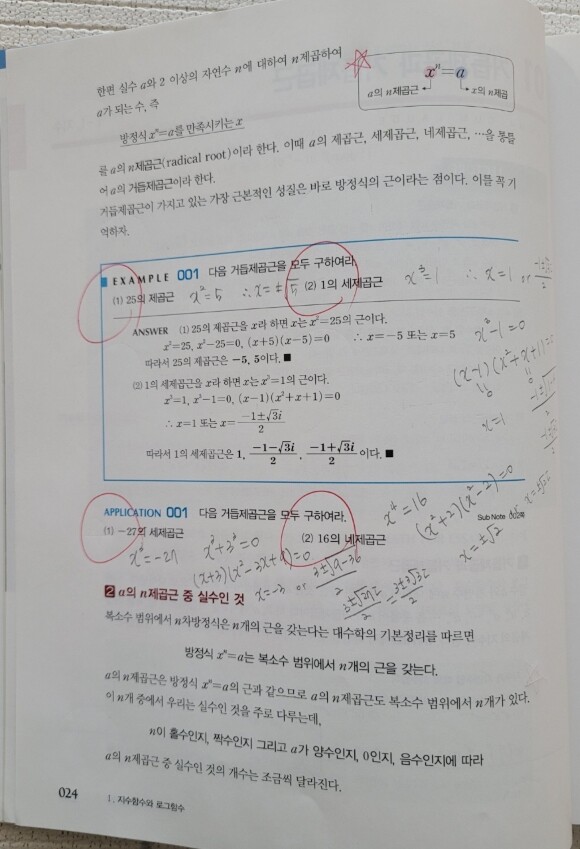 한편 실수 a와 2 이상의 자연수 n에 대하여 n제곱하여
a가 되는 수, 즉
방정식 xⁿ=a를 만족시키는 x
를 a의 n제곱근(radical root)이라 한다. 이때 a의 제곱근, 세제곱근, 네제곱근, …을 통틀
어 a의 거듭제곱근이라 한다.
거듭제곱근이 가지고 있는 가장 근본적인 성질은 바로 방정식의 근이라는 점이다. 이를 꼭 기
억하자.
xⁿ=a
a의 n제곱근
x의 n제곱
EXAMPLE 001 다음 거듭제곱근을 모두 구하여라.
(1) 25의 제곱근 x²=5 ∴x=±√5 (2) 1의 세제곱근 x³=1 ∴ x=1 or
ANSWER (1) 25의 제곱근을 x라 하면 x는 x²=25의 근이다.
x²=25, x²-25=0, (x+5)(x-5)=0 ∴ x=-5 또는 x=5
따라서 25의 제곱근은 -5, 5이다. ■
(2) 1의 세제곱근을 x라 하면 x는 x³=1의 근이다.
x³=1, x³-1=0, (x-1)(x²+x+1)=0
∴ x=1 또는 x=(-1±√3i)/2
따라서 1의 세제곱근은 1, (-1-√3i)/2, (-1+√3i)/2 이다. ■
x³-1=0
(x-1)(x²+x+1)=0
x=1
APPLICATION 001 다음 거듭제곱근을 모두 구하여라.
Sub Note 002쪽
(1) -27의 세제곱근
(2) 16의 네제곱근
x³=-27
x³+3³=0
(x+3)(x²-3x+9)=0
x=-3 or (3±√9-36)/2
(3±√27i)/2 = (3±3√3i)/2
x⁴=16
(x²+2)(x²-2)=0
x=±√2 or x=±√2i
2 a의 n제곱근 중 실수인 것
복소수 범위에서 n차방정식은 n개의 근을 갖는다는 대수학의 기본정리를 따르면
방정식 xⁿ=a는 복소수 범위에서 n개의 근을 갖는다.
a의 n제곱근은 방정식 xⁿ=a의 근과 같으므로 a의 n제곱근도 복소수 범위에서 n개가 있다.
이 n개 중에서 우리는 실수인 것을 주로 다루는데,
n이 홀수인지, 짝수인지 그리고 a가 양수인지, 0인지, 음수인지에 따라
a의 n제곱근 중 실수인 것의 개수는 조금씩 달라진다.
024
1. 지수함수와 로그함수